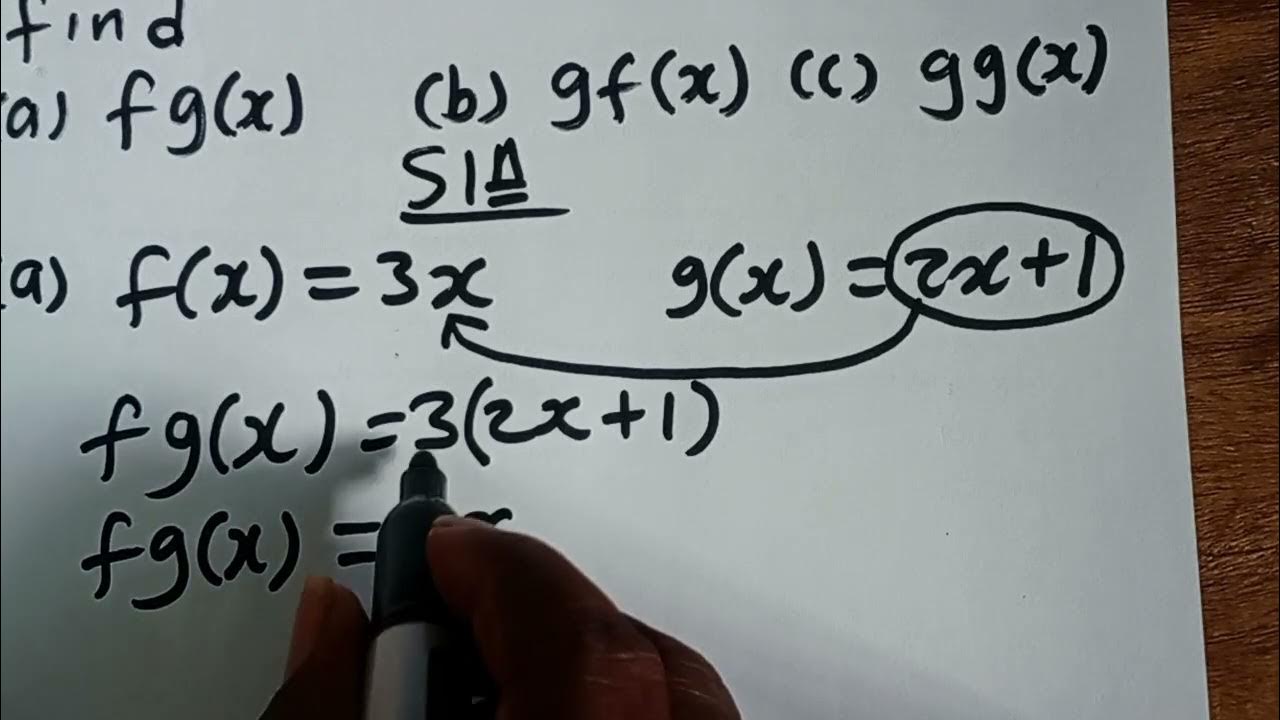 find
(a) fg(x) (b) gf(x) (c) gg(x)
(a) f(x) = 3x g(x) = 2x+1
fg(x) = 3(2x+1)
fg(x) =